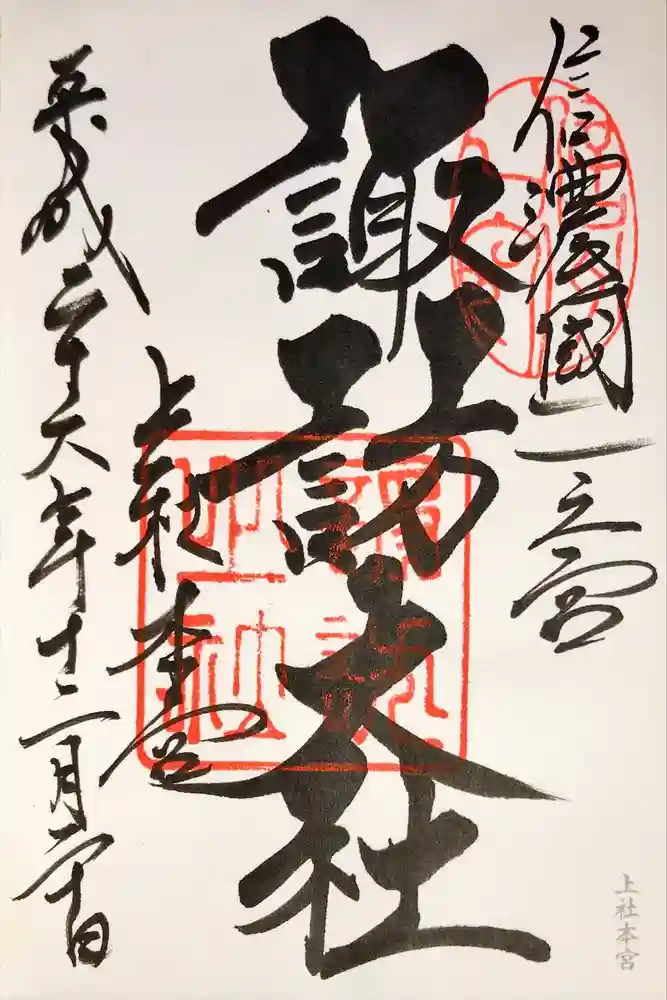 信濃國一之宮
諏訪大社
上社本宮
平成二十六年十二月二十日
上社本宮